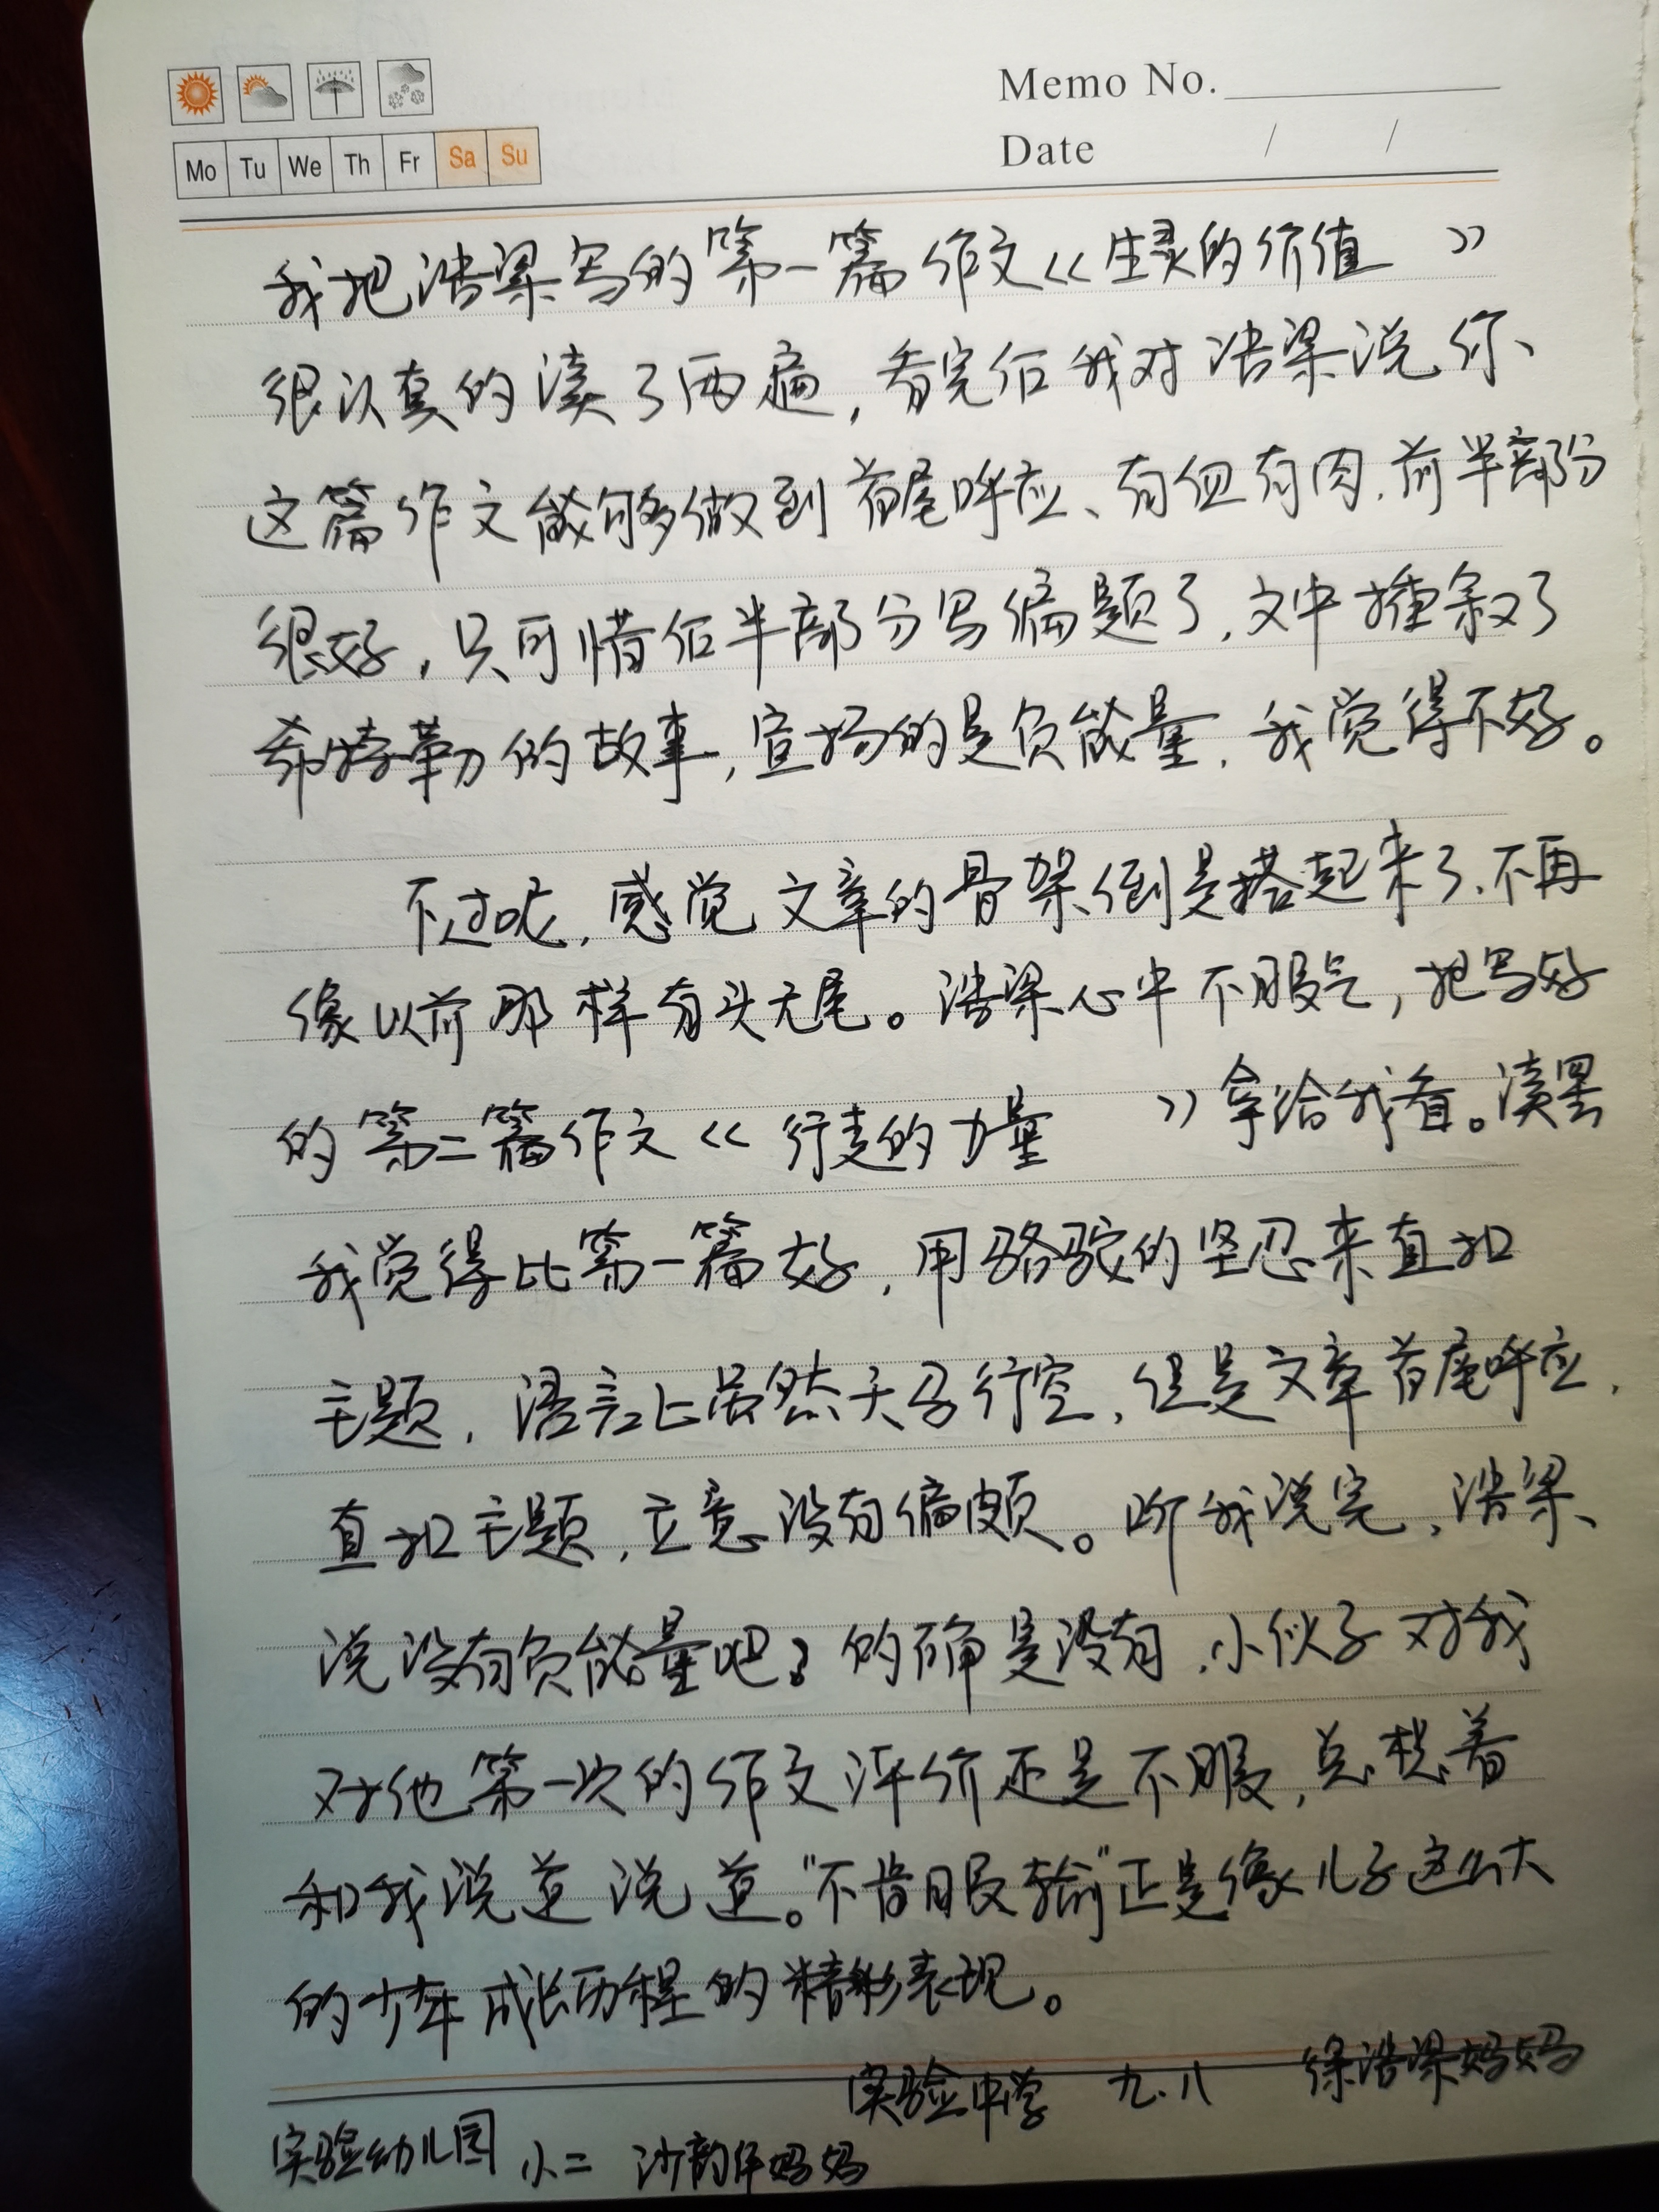 Memo No.
Mo Tu We Th Fr Sa Su
Date / /
我把浩梁写的第一篇作文《生灵的价值 》
很认真的读了两遍,看完后我对浩梁说你、
这篇作文能够做到首尾呼应、有血有肉,前半部分
很好,只可惜后半部分写偏题了,文中插叙了
希特勒的故事,宣扬的是负能量,我觉得不好。
不过呢,感觉文章的骨架倒是搭起来了、不再
像以前那样有头无尾。浩梁心中不服气,把写好
的第二篇作文《行走的力量 》拿给我看。读罢
我觉得比第一篇好,用骆驼的坚忍来直扣
主题,语言上虽然天马行空,但是文章首尾呼应,
直扣主题,立意没有偏颇。听我说完,浩梁、
说没有负能量吧?的确是没有,小伙子对我
对他第一次的作文评价还是不服,总想着
和我说道说道。"不肯服输"正是像儿子这么大
的少年成长历程的精彩表现。
实验中学 九.八 徐浩梁妈妈
实验幼儿园 小二 沙韵妈妈